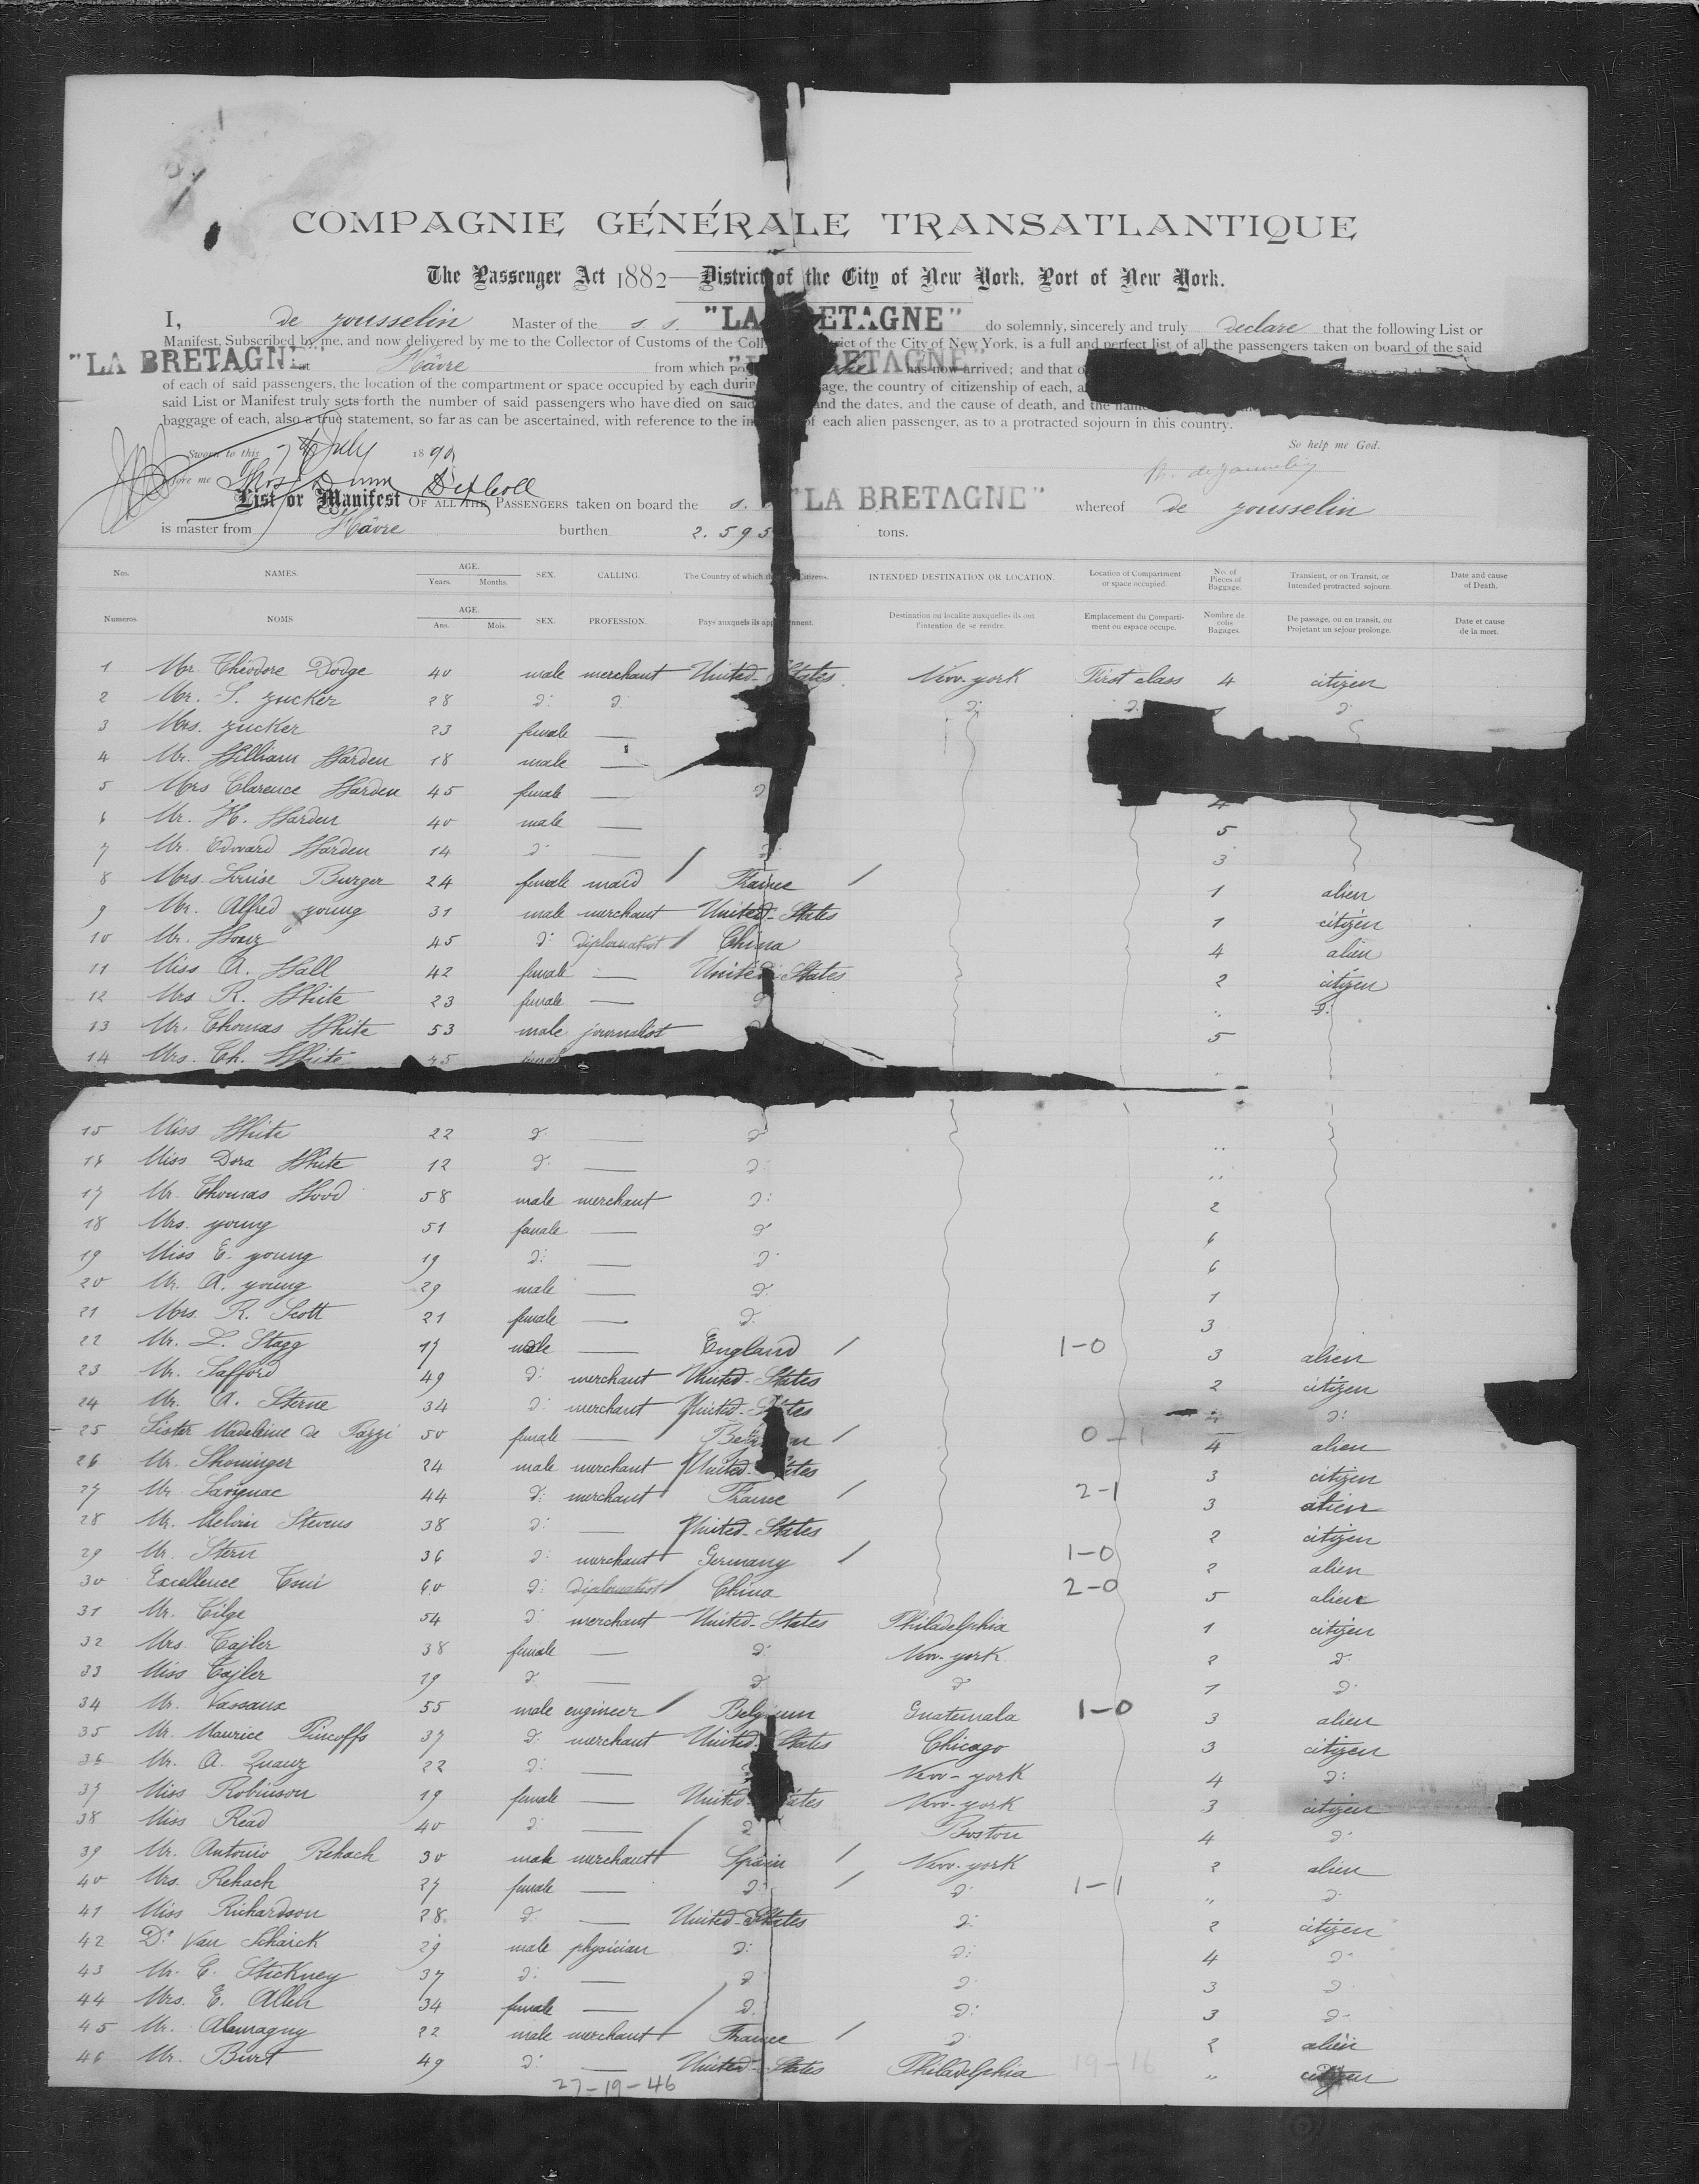 COMPAGNIE GÉNÉRALE TRANSATLANTIQUE
The Passenger Act 1882—District of the City of New York, Port of New York.
I, de Jousselin Master of the s. s. "LA BRETAGNE" do solemnly, sincerely and truly declare that the following List or
Manifest, Subscribed by me, and now delivered by me to the Collector of Customs of the Coll rict of the City of New York, is a full and perfect list of all the passengers taken on board of the said
"LA BRETAGNE" at Hâvre from which po has now arrived; and that o
of each of said passengers, the location of the compartment or space occupied by each durin age, the country of citizenship of each, a
said List or Manifest truly sets forth the number of said passengers who have died on said and the dates, and the cause of death, and the name
baggage of each, also a true statement, so far as can be ascertained, with reference to the in of each alien passenger, as to a protracted sojourn in this country.
So help me God.
Sworn to this 7th July 1890
before me Thos Dunn
List or Manifest OF ALL THE PASSENGERS taken on board the s. "LA BRETAGNE" whereof de Jousselin
is master from Hâvre burthen 2.595 tons.
Nos. NAMES. AGE. Years. Months. SEX. CALLING. The Country of which th citizens. INTENDED DESTINATION OR LOCATION. Location of Compartment or space occupied. No. of Pieces of Baggage. Transient, or on Transit, or Intended protracted sojourn. Date and cause of Death.
Numeros. NOMS AGE. Ans. Mois. SEX. PROFESSION. Pays auxquels ils app nnent. Destination ou localite auxquelles ils ont l'intention de se rendre. Emplacement du Comparti-ment ou espace occupe. Nombre de colis Bagages. De passage, ou en transit, ou Projetant un sejour prolonge. Date et cause de la mort.
1 Mr. Théodore Dodge 40 male merchant United-States New-york First class 4 citizen
2 Mr. S. Zucker 28 d: d: d: d: d:
3 Mrs. Zucker 23 female —
4 Mr. William Warden 18 male —
5 Mrs Clarence Warden 45 female — d 4
6 Mr. H. Warden 40 male — 5
7 Mr. Edward Warden 14 d: — 3
8 Mrs. Louise Burger 24 female maid France 1 alien
9 Mr. Alfred young 31 male merchant United-States 1 citizen
10 Mr. 45 d: diplomatist China 4 alien
11 Miss A. Hall 42 female — United States 2 citizen
12 Mrs R. White 23 female — d .. d:
13 Mr. Thomas White 53 male journalist 5
14 Mrs. Th. White
15 Miss White 22 d: — d ..
16 Miss Dora White 12 d: — d ..
17 Mr. Thomas Wood 58 male merchant d: 2
18 Mrs. young 51 female — d 6
19 Miss E. young 19 d: — d: 6
20 Mr. A. young 29 male — d: 1
21 Mrs. R. Scott 21 female — d: 3
22 Mr. L. Stagg 17 male — England / 1-0 3 alien
23 Mr. Safford 49 d: merchant United-States 2 citizen
24 Mr. A. Sterne 34 d: merchant United-States d:
25 Sister Madeleine de Pazzi 50 female — / 0-1 4 alien
26 Mr. Shoninger 24 male merchant United-States 3 citizen
27 Mr. Savignac 44 d: merchant France / 2-1 3 alien
28 Mr. Melvin Stevens 38 d: — United-States 2 citizen
29 Mr. Stern 36 d: merchant Germany / 1-0 2 alien
30 Excellence Tsui 60 d: diplomatist China 2-0 5 alien
31 Mr. Tilge 54 d: merchant United-States Philadelphia 1 citizen
32 Mrs. Tajler 38 female — d: New-york 2 d:
33 Miss Tajler 19 d: — d: d: 1 d:
34 Mr. Vassaux 55 male engineer Belgium Guatemala 1-0 3 alien
35 Mr. Maurice Pincoffs 37 d: merchant United-States Chicago 3 citizen
36 Mr. A. 22 d: — New-york 4 d:
37 Miss Robinson 19 female — United-States New-york 3 citizen
38 Miss Read 40 d: — d Boston 4 d:
39 Mr. Antonio Rehach 30 male merchant Spain / New-york 2 alien
40 Mrs. Rehach 27 female — d: / d: 1-1 .. d:
41 Miss Richardson 28 d: — United-States d: 2 citizen
42 Dr. Van Schaick 29 male physician d: d: 4 d:
43 Mr. E. Stickney 37 d: — d: d: 3 d:
44 Mrs. E. Allen 34 female — d: d: 3 d:
45 Mr. Alamagny 22 male merchant France / d: 2 alien
46 Mr. Burt 49 d: — United-States Philadelphia 19-16 .. citizen
27-19-46